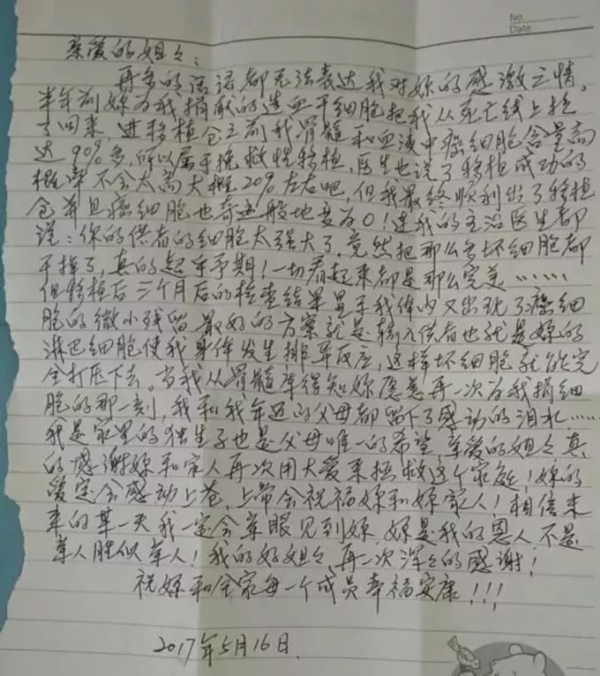 No.
Date
亲爱的姐々：
再多的话语都无法表达我对妳的感激之情。
半年前妳为我捐献的造血干细胞把我从死亡线上拉
了回来。进移植仓之前我骨髓和血液中癌细胞含量高
达90%多，所以属于挽救性移植，医生也说了移植成功的
概率不会太高大概20%左右吧，但我最终顺利出了移植
仓并且癌细胞也奇迹般地变为0！连我的主治医生都
说：你的供者的细胞太强大了，竟然把那么多坏细胞都
干掉了，真的超乎予期！一切看起来都是那么完美……
但移植后三个月后的检查结果显示我体内又出现了癌细
胞的微小残留，最好的方案就是输入供者也就是妳的
淋巴细胞使我身体发生排异反应，这样坏细胞就能完
全打压下去。当我从骨髓库得知妳愿意再一次为我捐细
胞的那一刻，我和我年迈的父母都留下了感动的泪水……
我是家里的独生子也是父母唯一的希望，亲爱的姐々真
的感谢妳和家人再次用大爱来拯救这个家庭！妳的
爱定会感动上苍，上帝会祝福妳和妳家人！相信未
来的某一天我一定会亲眼见到妳，妳是我的恩人，不是
亲人胜似亲人！我的好姐々，再一次深々的感谢！
祝妳和全家每一个成员幸福安康！！！
2017年5月16日.